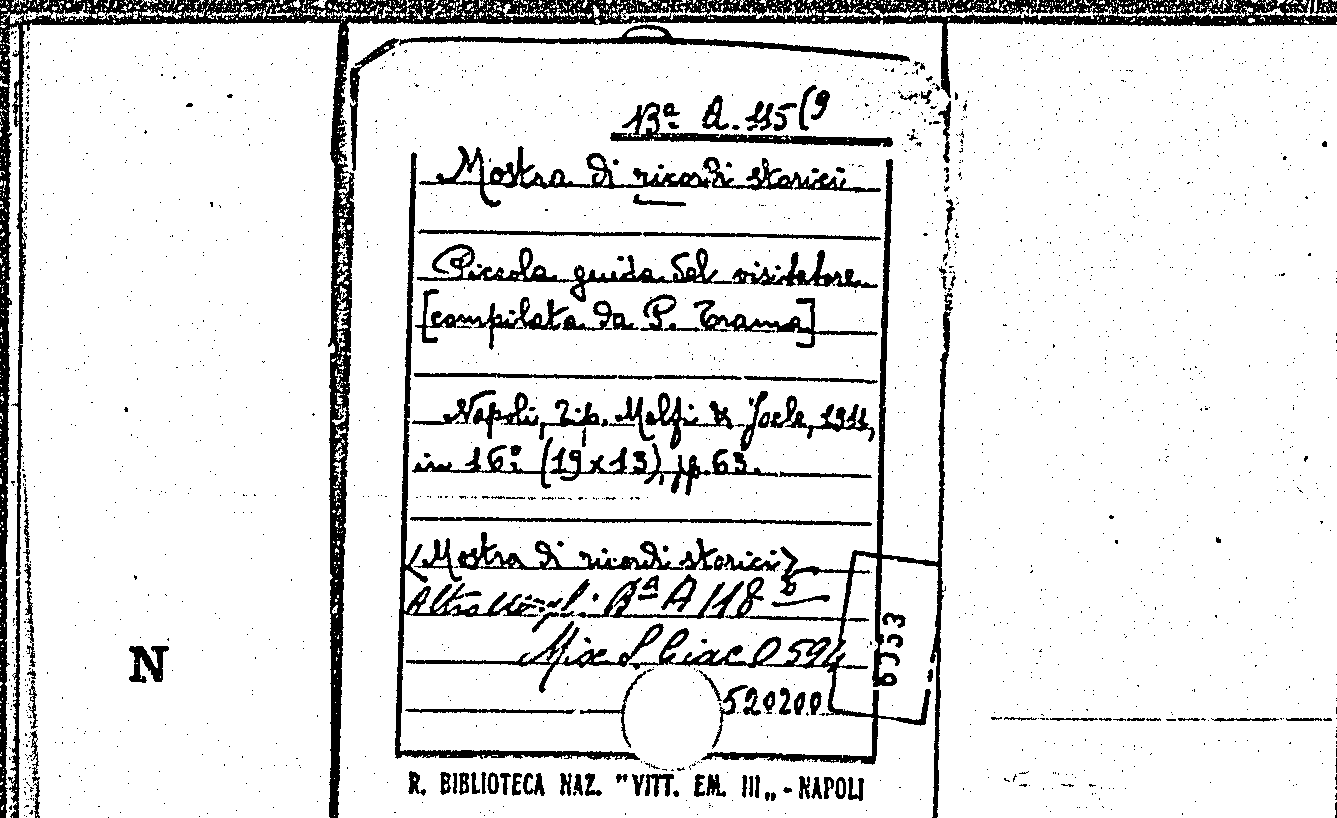 Bª A. 115(9
Mostra di ricordi storici
Piccola guida del visitatore
[compilata da P. Trama]
Napoli, Tip. Melfi & Joele, 1911,
in 16º (19x13), pp. 63.
(Mostra di ricordi storici)
Altro : Bª A 118
Misc S. Giac O 594
6353
520200
N
R. BIBLIOTECA NAZ. "VITT. EM. III„ - NAPOLI